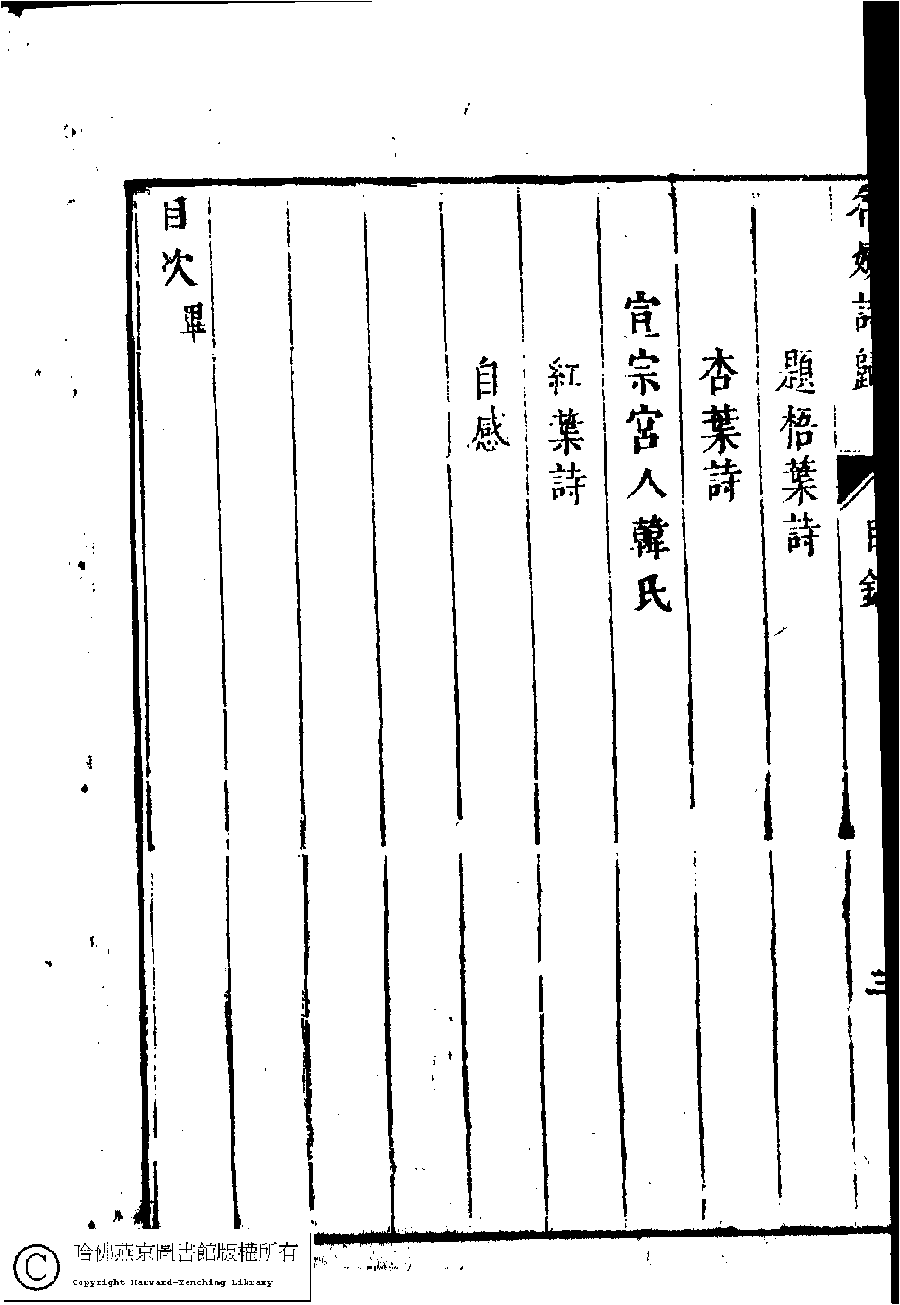 名媛詩歸
目錄
三
題梧葉詩
杏葉詩
宣宗宮人韓氏
紅葉詩
自感
目次畢
哈佛燕京圖書館版權所有
Copyright Harvard-Yenching Library